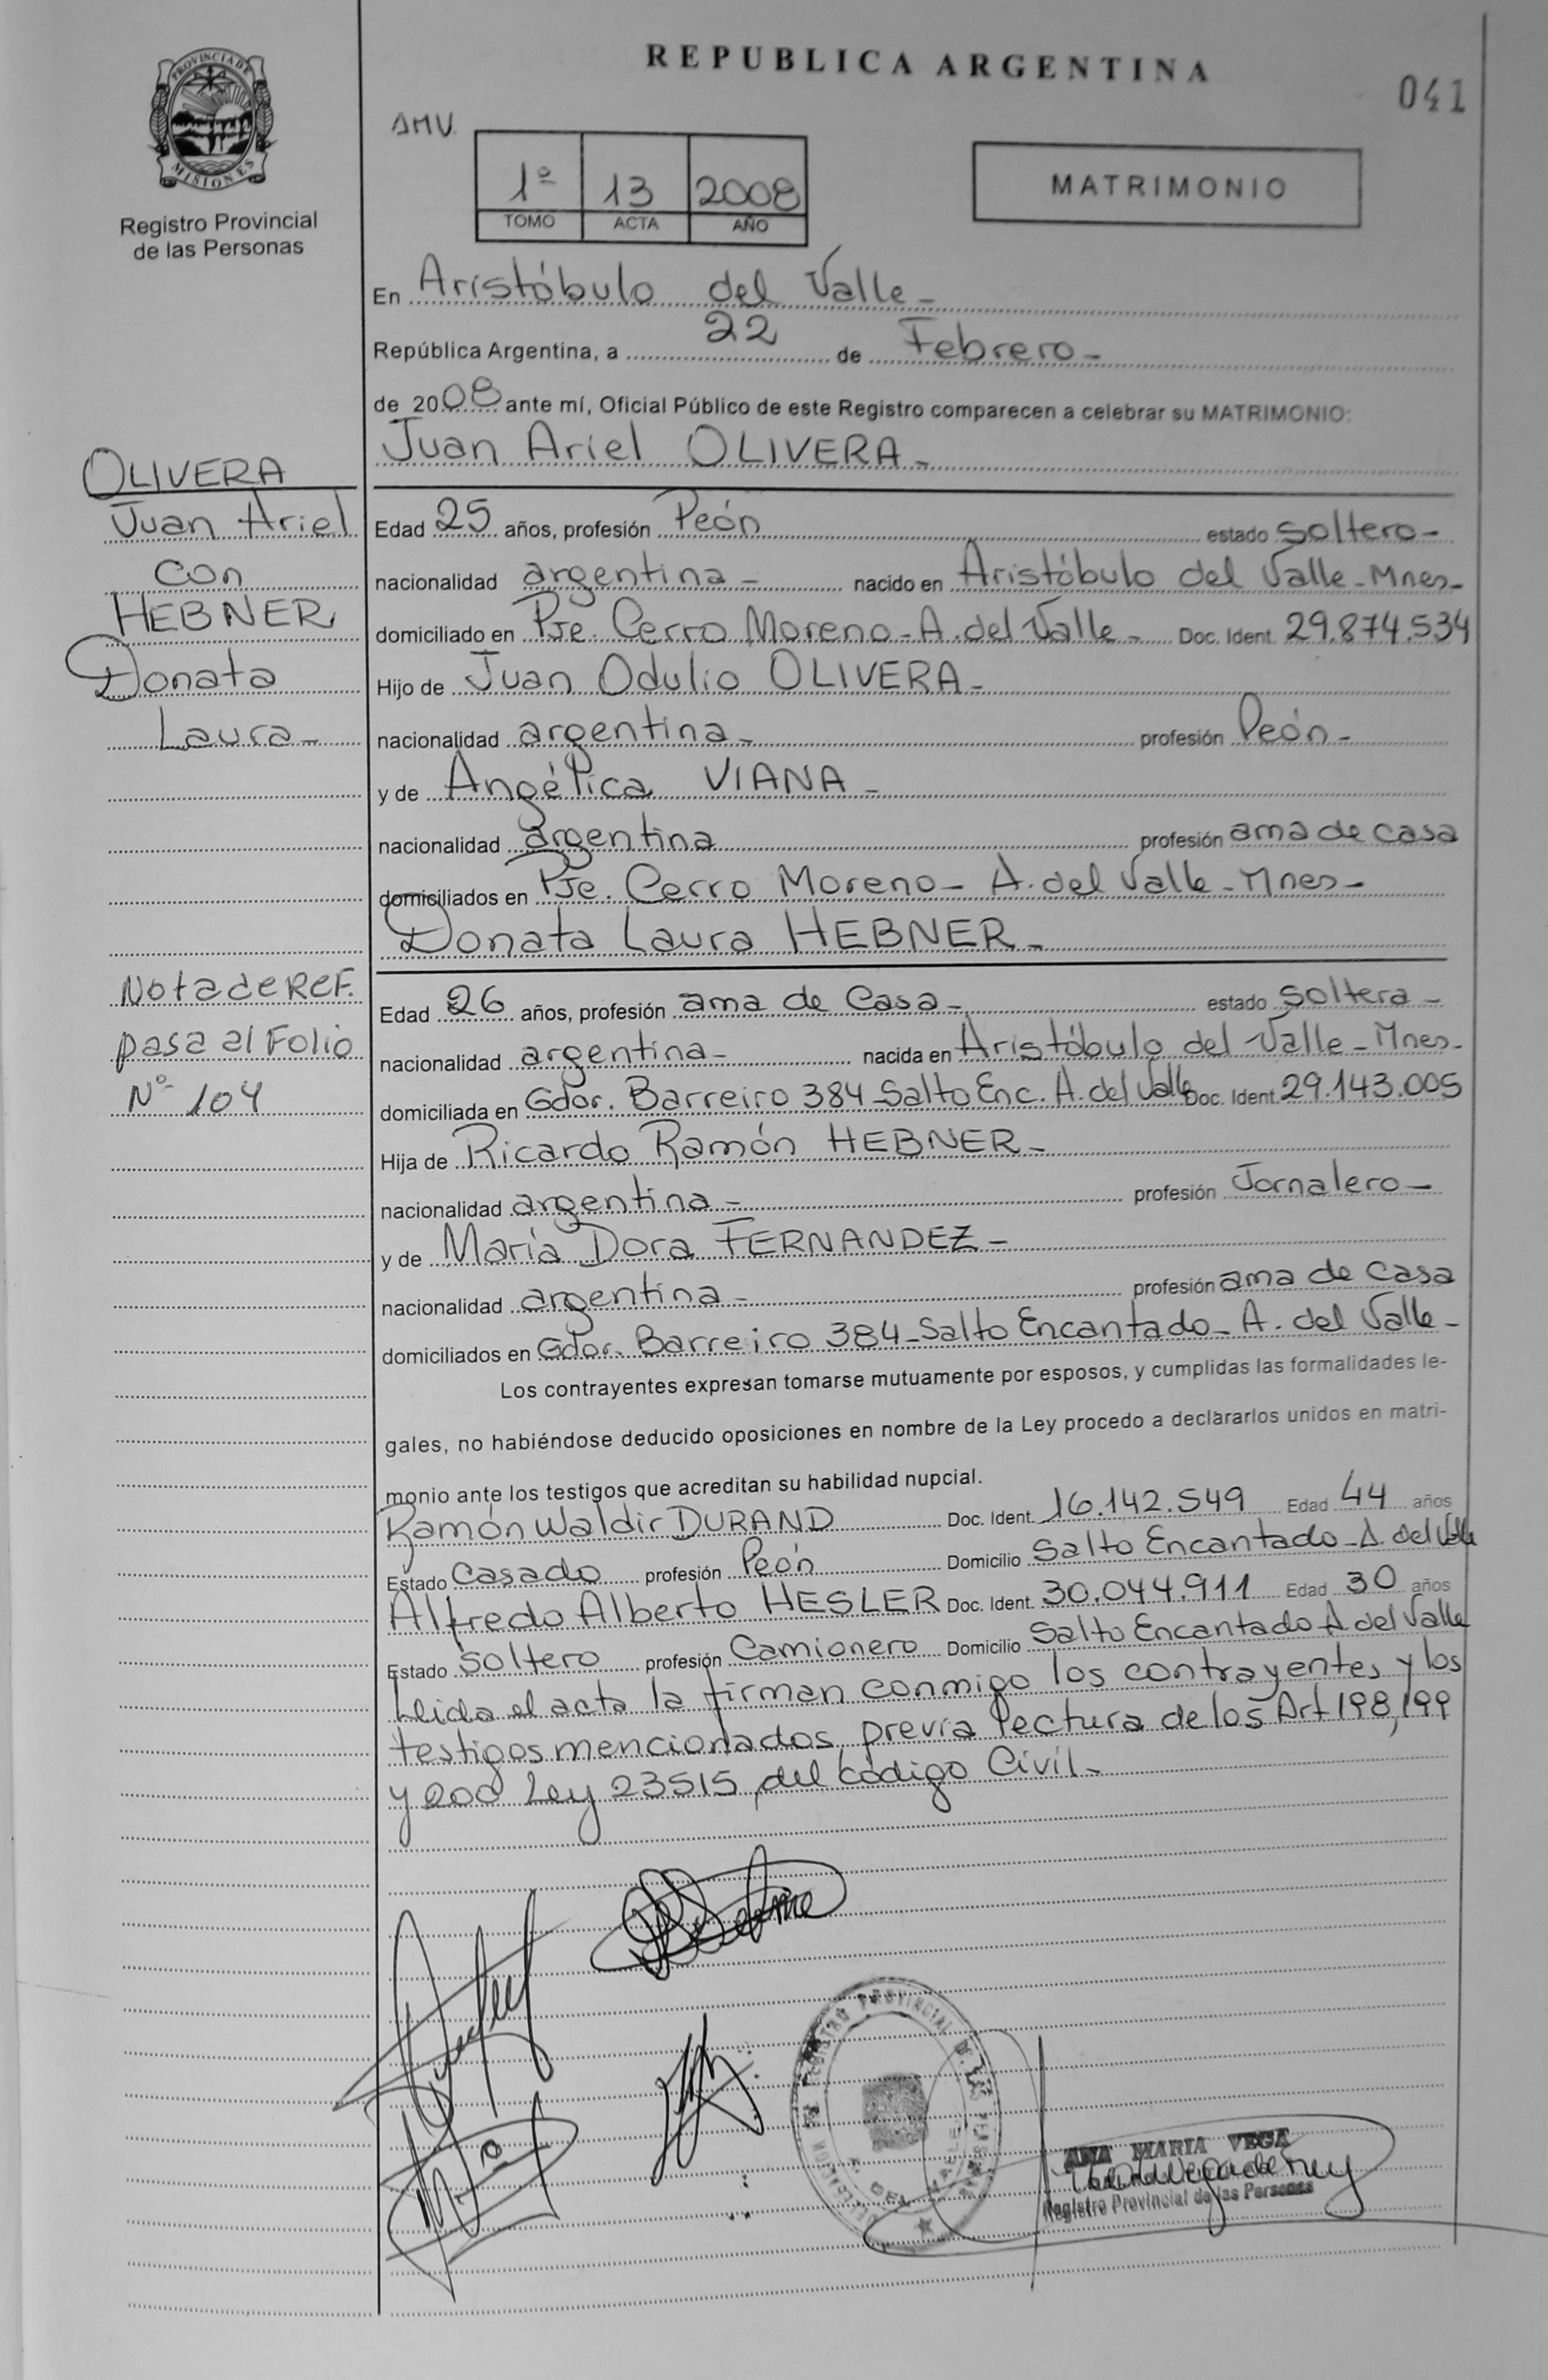 REPUBLICA ARGENTINA
041
PROVINCIA DE
MISIONES
Registro Provincial
de las Personas
AMV
1º 13 2008
TOMO ACTA AÑO
MATRIMONIO
En Aristóbulo del Valle-
República Argentina, a 22 de Febrero-
de 2008 ante mí, Oficial Público de este Registro comparecen a celebrar su MATRIMONIO:
Juan Ariel OLIVERA-
OLIVERA
Juan Ariel
con
HEBNER
Donata
Laura-
Edad 25 años, profesión Peón estado soltero-
nacionalidad argentina- nacido en Aristóbulo del Valle-Mnes-
domiciliado en Pje. Cerro Moreno-A.del Valle- Doc. Ident. 29.874.534
Hijo de Juan Odulio OLIVERA-
nacionalidad argentina- profesión Peón-
y de Angélica VIANA-
nacionalidad argentina profesión ama de casa
domiciliados en Pje. Cerro Moreno- A.del Valle-Mnes-
Donata Laura HEBNER-
Nota de REF.
pasa al Folio
Nº 104
Edad 26 años, profesión ama de Casa- estado soltera-
nacionalidad argentina- nacida en Aristóbulo del Valle-Mnes-
domiciliada en Gdor. Barreiro 384-Salto Enc. A.del Valle Doc. Ident. 29.143.005
Hija de Ricardo Ramón HEBNER-
nacionalidad argentina- profesión Jornalero-
y de María Dora FERNANDEZ-
nacionalidad argentina- profesión ama de casa
domiciliados en Gdor. Barreiro 384-Salto Encantado- A. del Valle-
Los contrayentes expresan tomarse mutuamente por esposos, y cumplidas las formalidades le-
gales, no habiéndose deducido oposiciones en nombre de la Ley procedo a declararlos unidos en matri-
monio ante los testigos que acreditan su habilidad nupcial.
Ramón Waldir DURAND Doc. Ident. 16.142.549 Edad 44 años
Estado Casado profesión Peón Domicilio Salto Encantado-A.del Valle
Alfredo Alberto HESLER Doc. Ident. 30.044.911 Edad 30 años
Estado soltero profesión Camionero Domicilio Salto Encantado A del Valle
Leida el acta la firman conmigo los contrayentes y los
testigos mencionados, previa lectura de los Art 198,199
y 200 Ley 23515, del código Civil-
REGISTRO PROVINCIAL DE LAS PERSONAS
A. DEL VALLE
ANA MARIA VEGA
Registro Provincial de las Personas